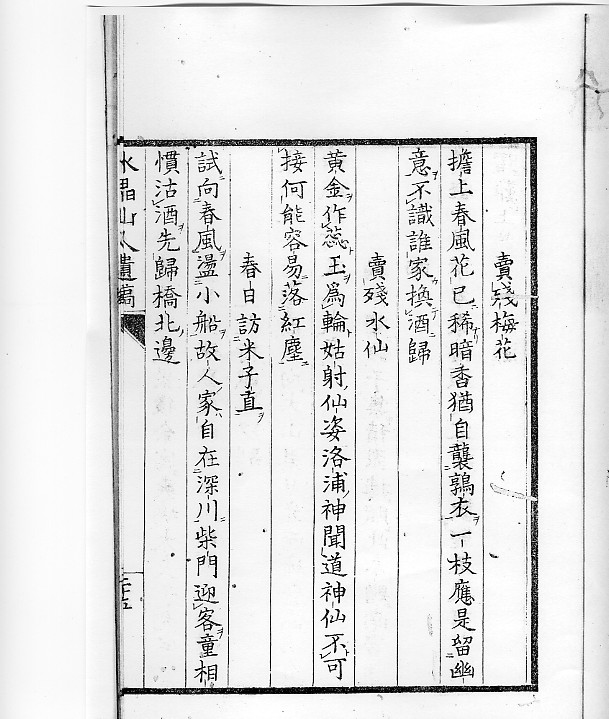 賣殘梅花
擔上春風花已稀暗香猶自襲鶉衣一枝應是留幽
意不識誰家換酒歸
賣殘水仙
黃金作蕊玉爲輪姑射仙姿洛浦神聞道神仙不可
接何能容易落紅塵
春日訪米子直
試向春風盪小船故人家自在深川柴門迎客童相
慣沽酒先歸橋北邊
水晶山人遺稿